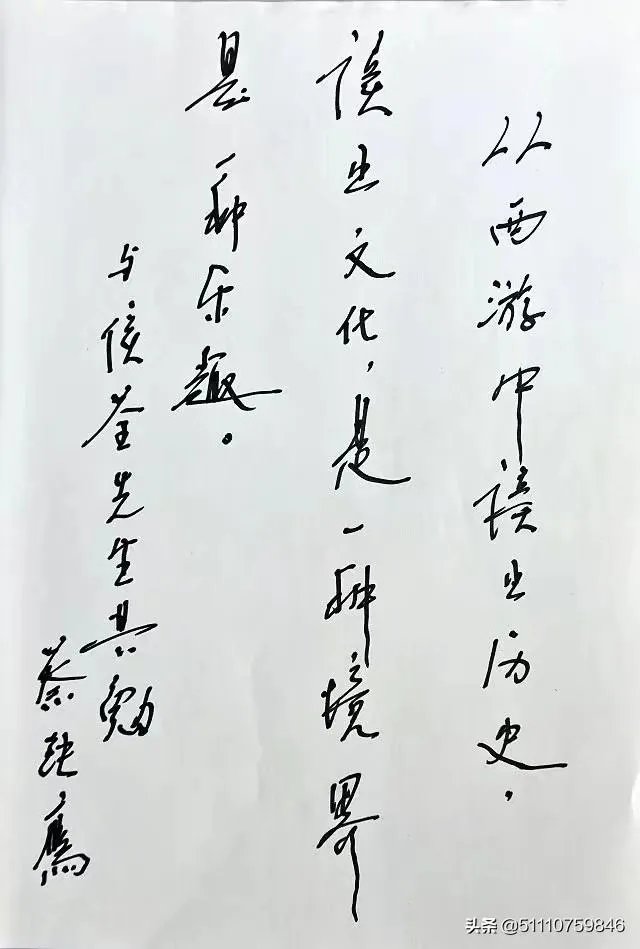 从西游中读出历史，
读出文化，是一种境界
是一种乐趣。
与侯荃先生共勉
蔡铁鷹
头条 @51110759846